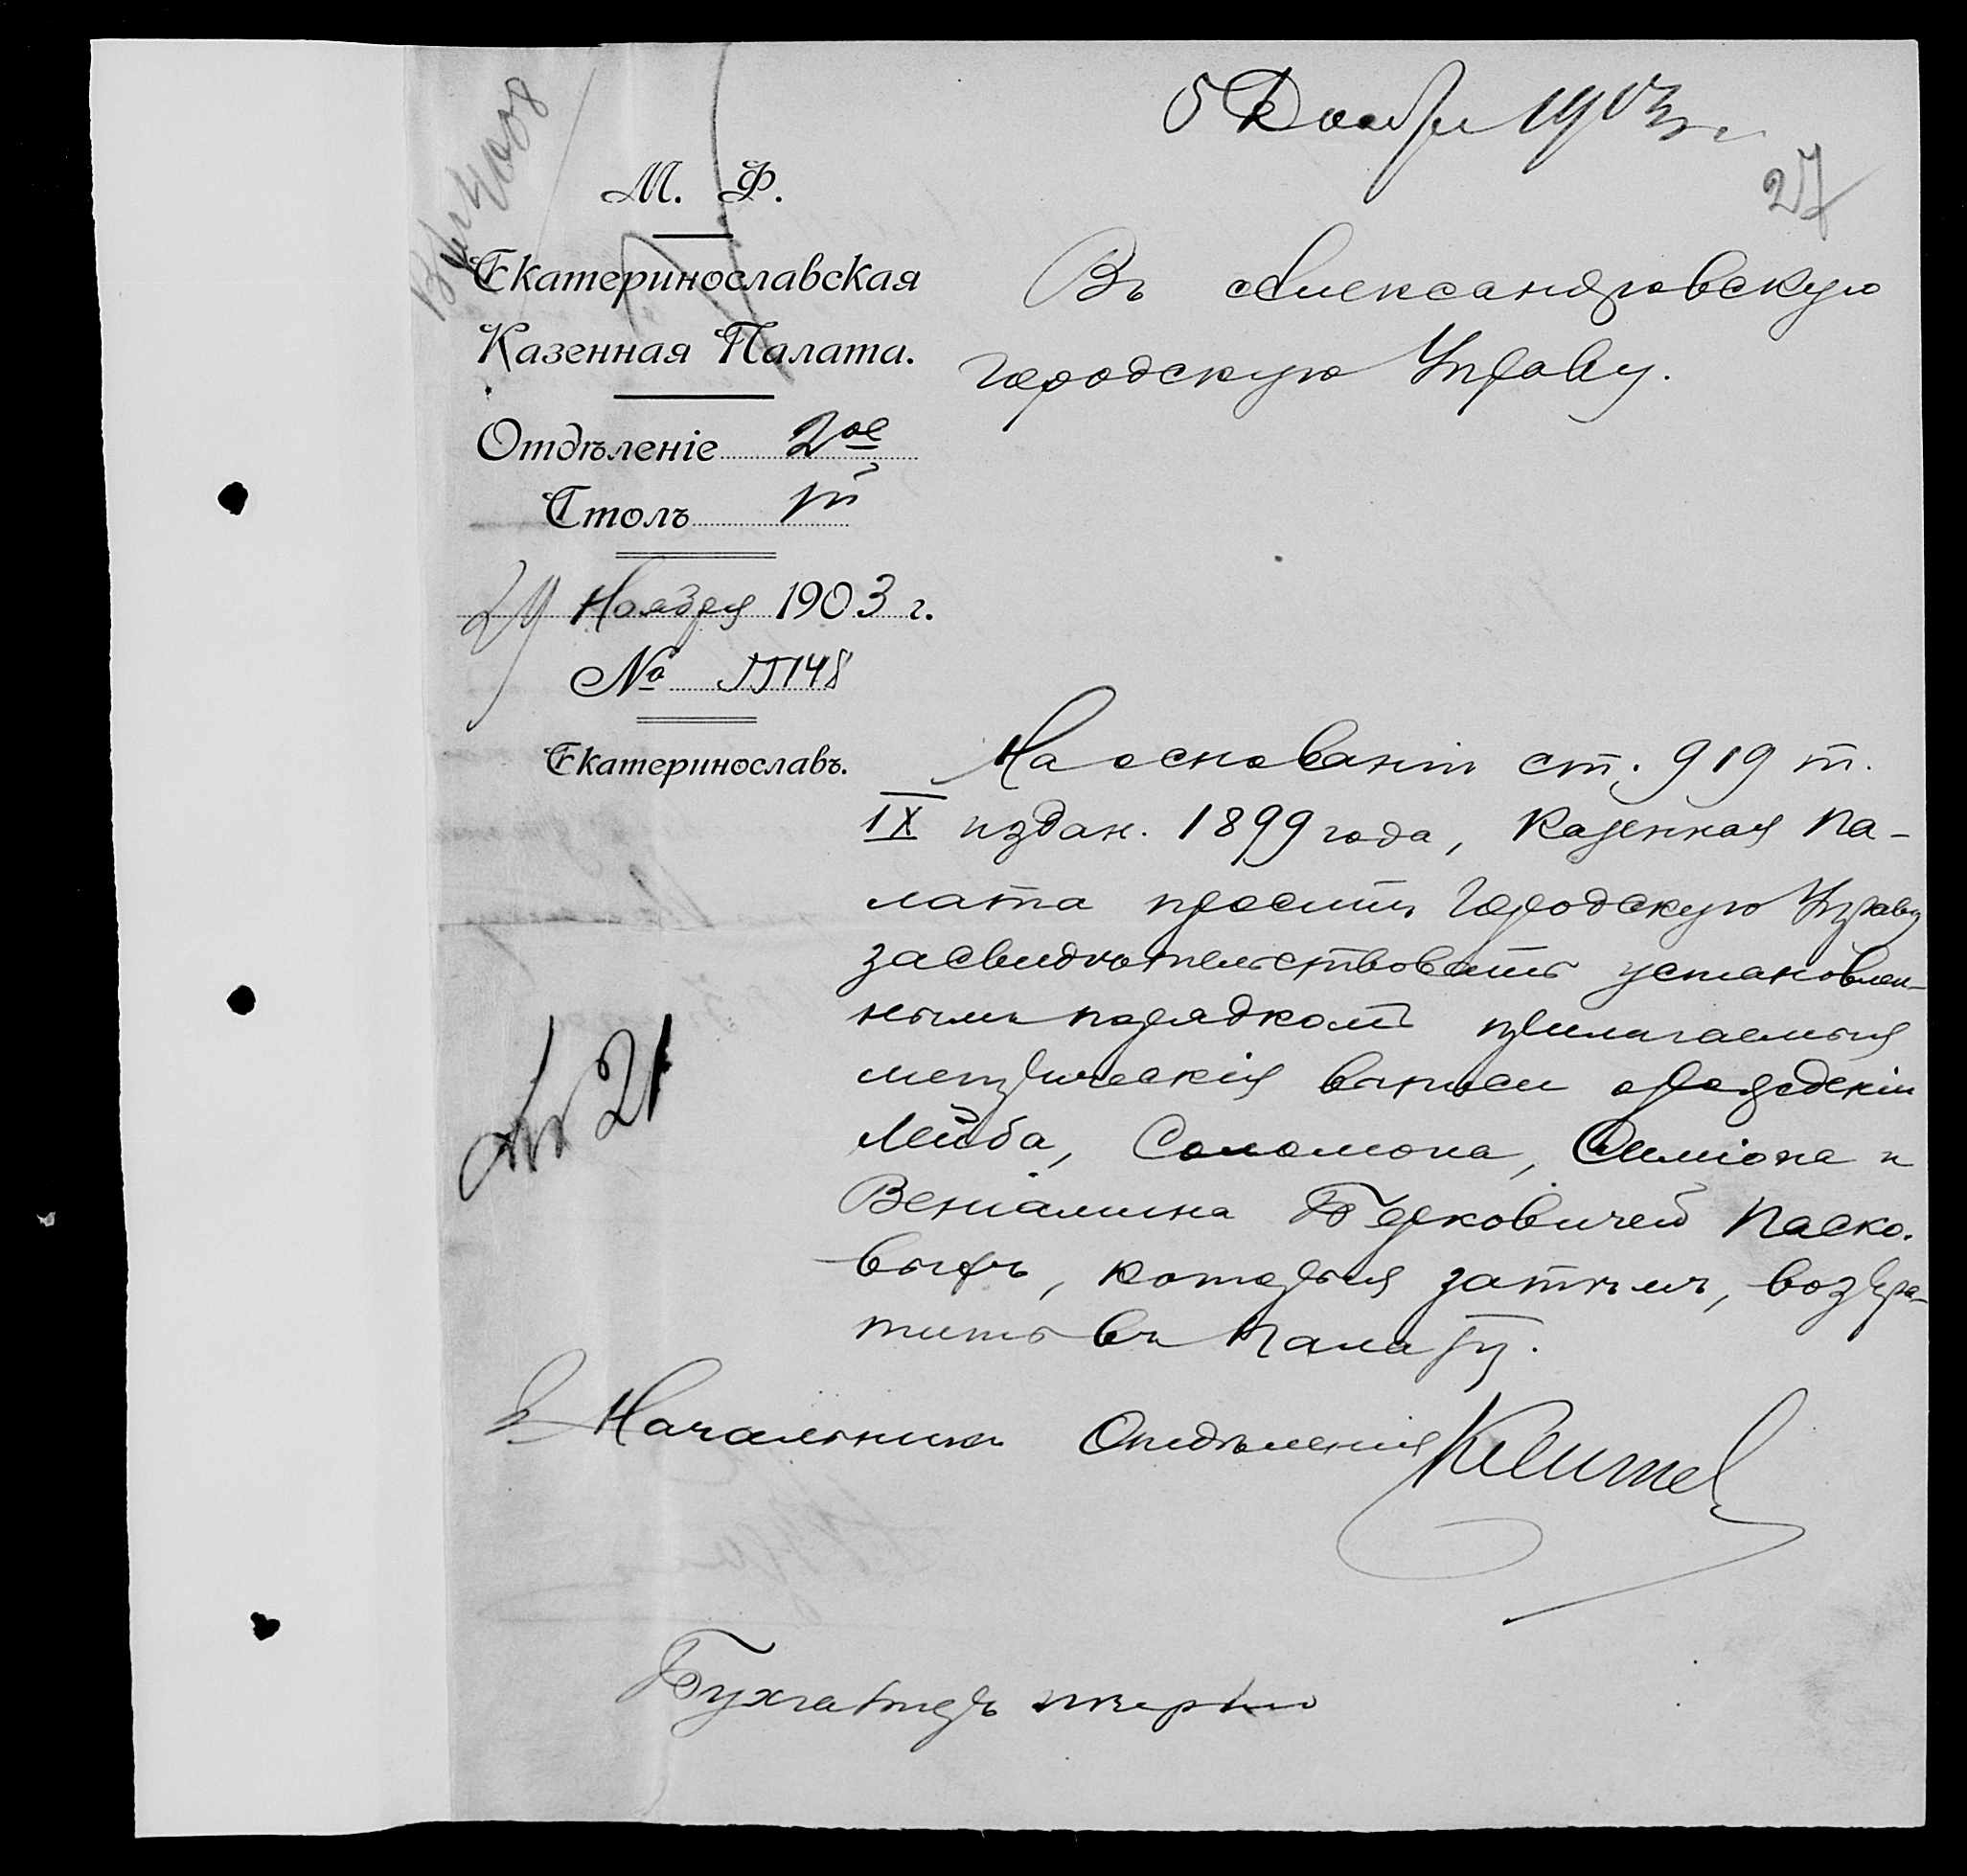 5 Декабря 1903 г
27
Вх 4008
М. Ф.
Екатеринославская
Казенная Палата.
Отдѣленіе 2ое
Столъ
29 Ноября 1903 г.
№ 55148
Екатеринославъ.
Въ Александровскую
Городскую Управу.
На основаніи ст. 919 т.
IX издан. 1899 года, Казенная Па-
лата проситъ Городскую Управу
засвидѣтельствовать установлен-
нымъ порядкомъ прилагаемыя
метрическія выписи о рожденіи
Лейба, Соломона, Симіона и
Веніамина Берковичей Паско-
выхъ, которыя затѣмъ, возвра-
тить въ Палату.
№ 21
Начальникъ Отдѣленія
Бухгалтеръ